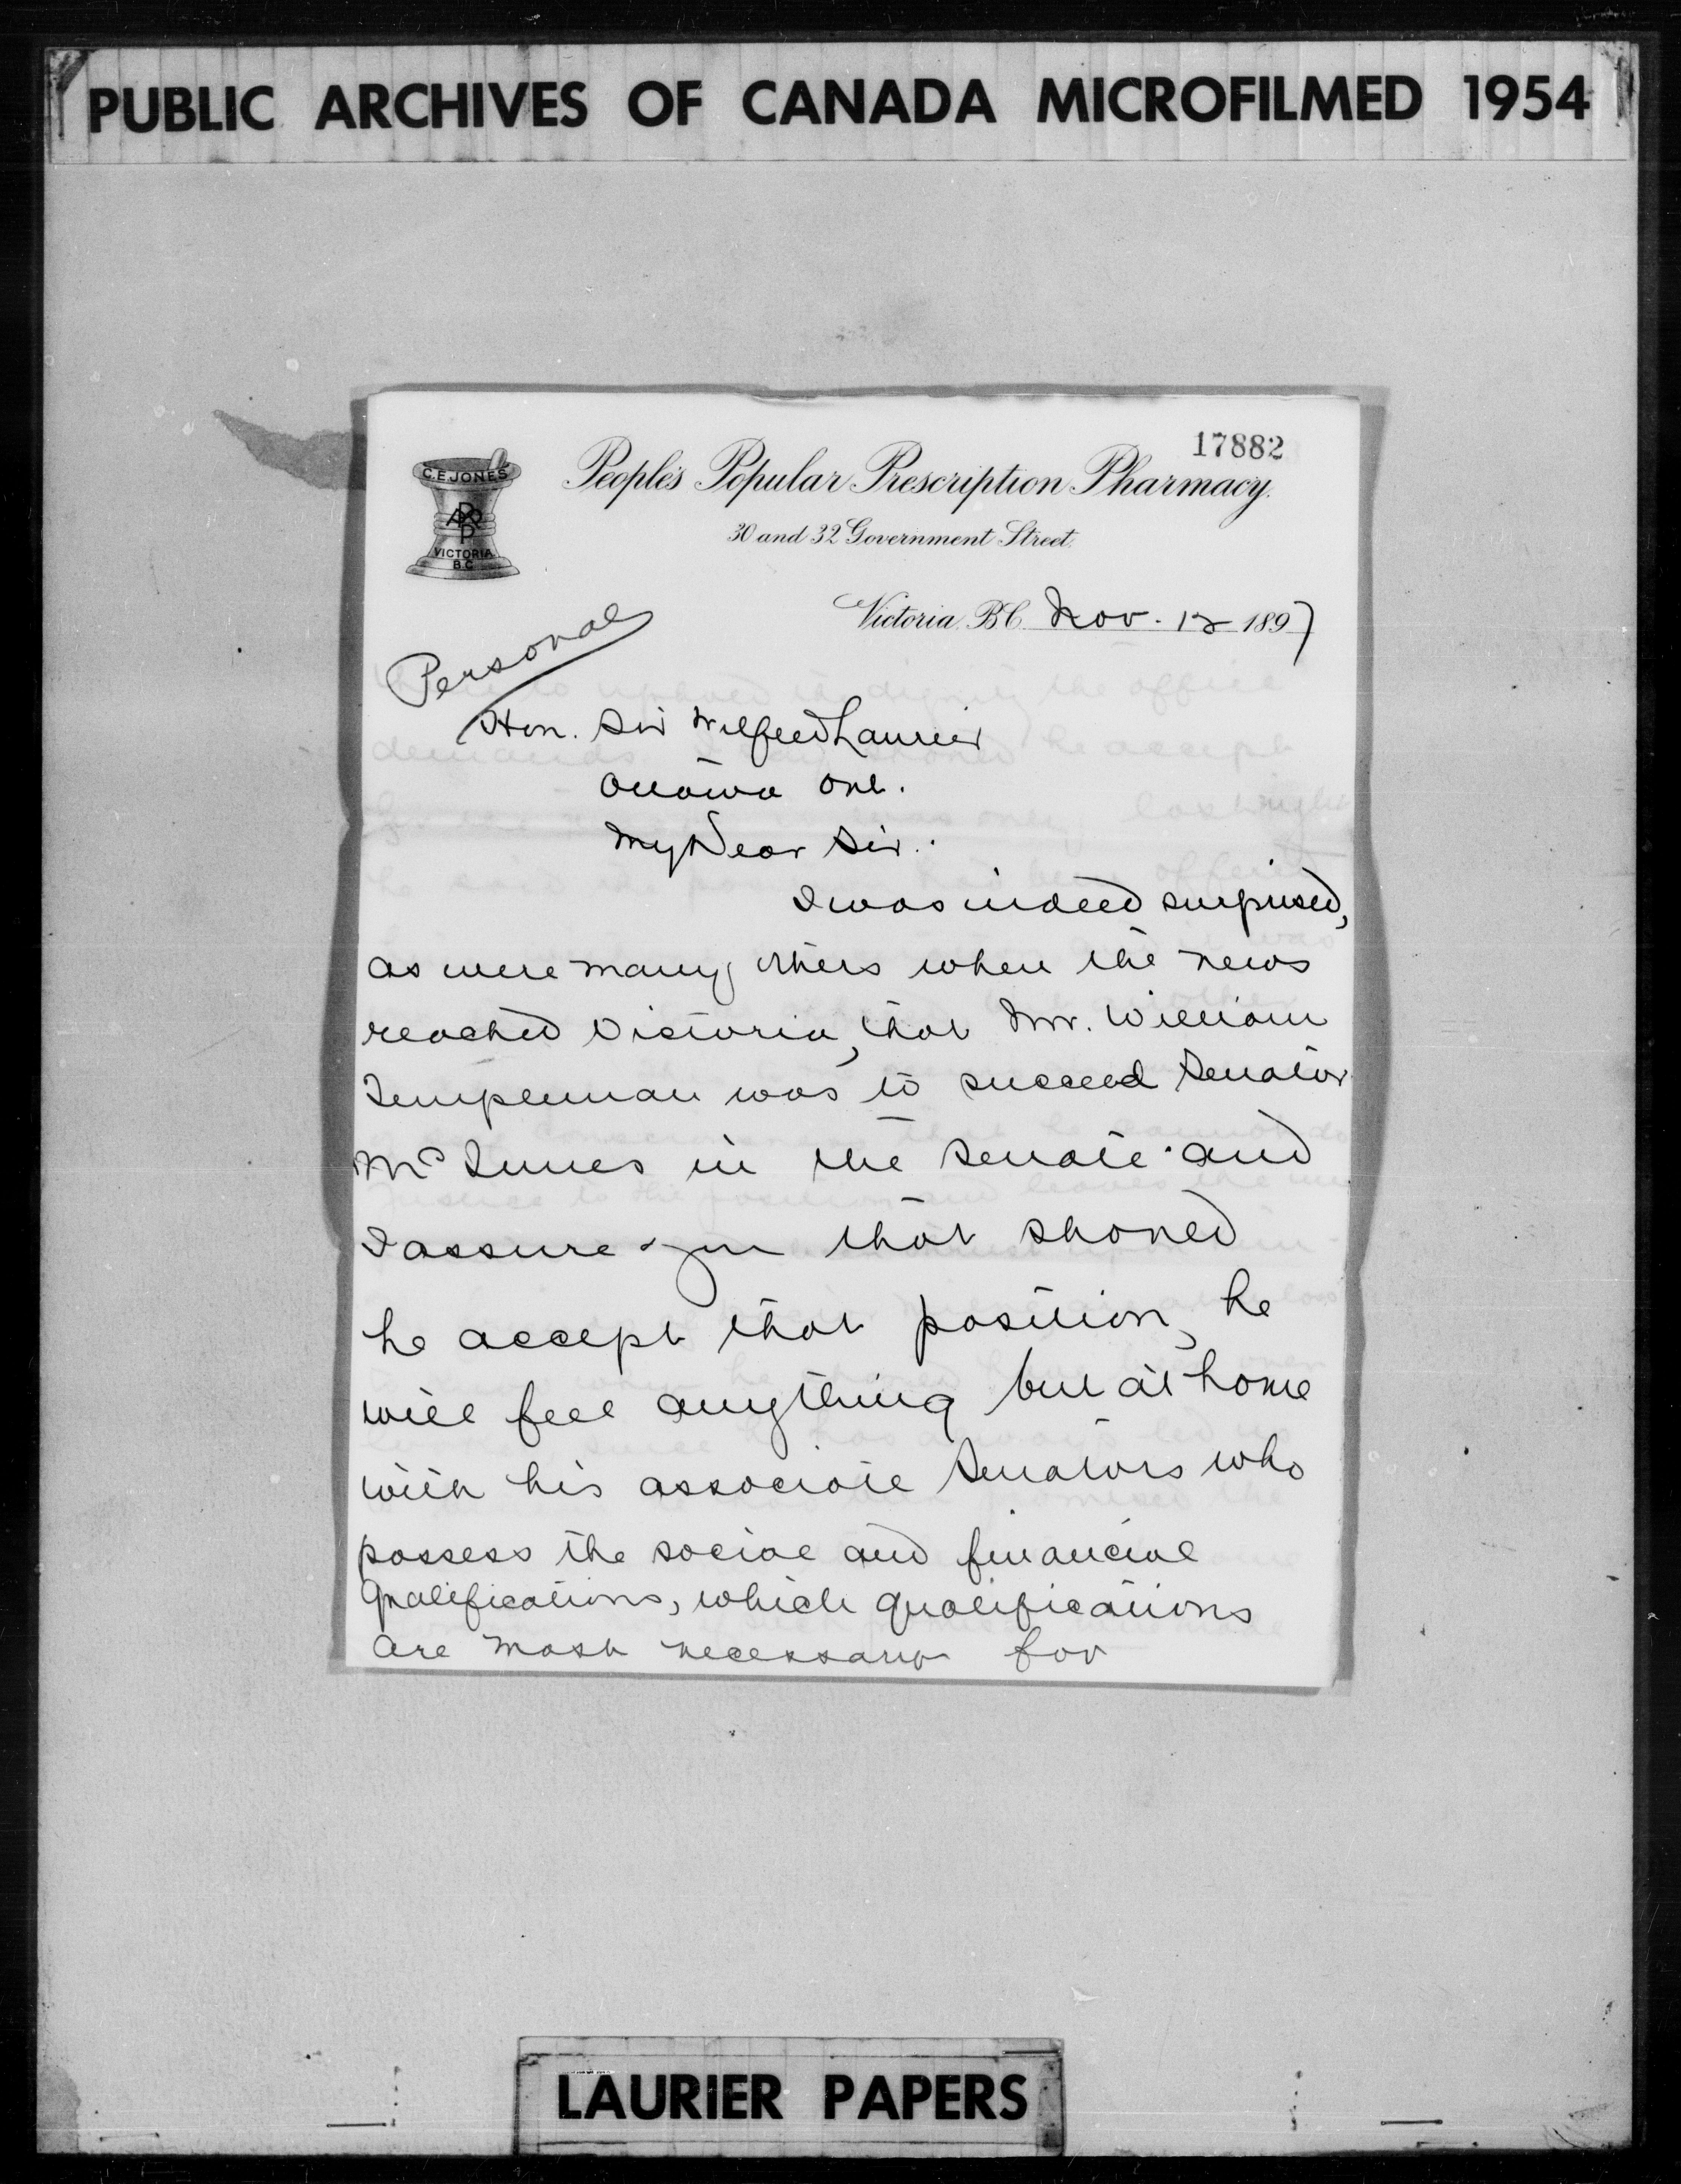 PUBLIC ARCHIVES OF CANADA MICROFILMED 1954
17882
C.E. JONES
VICTORIA
B.C.
People's Popular Prescription Pharmacy.
30 and 32 Government Street.
Victoria, B.C. Nov. 12 1897
Personal
Hon. Sir Wilfred Laurier
Ottawa Ont.
My Dear Sir:
I was indeed surprised,
as were many others when the news
reached Victoria, that Mr. William
Templeman was to succeed Senator
McInnes in the Senate and
I assure you that should
he accept that position, he
will feel anything but at home
with his associate Senators who
possess the social and financial
qualifications, which qualifications
are most necessary for
LAURIER PAPERS